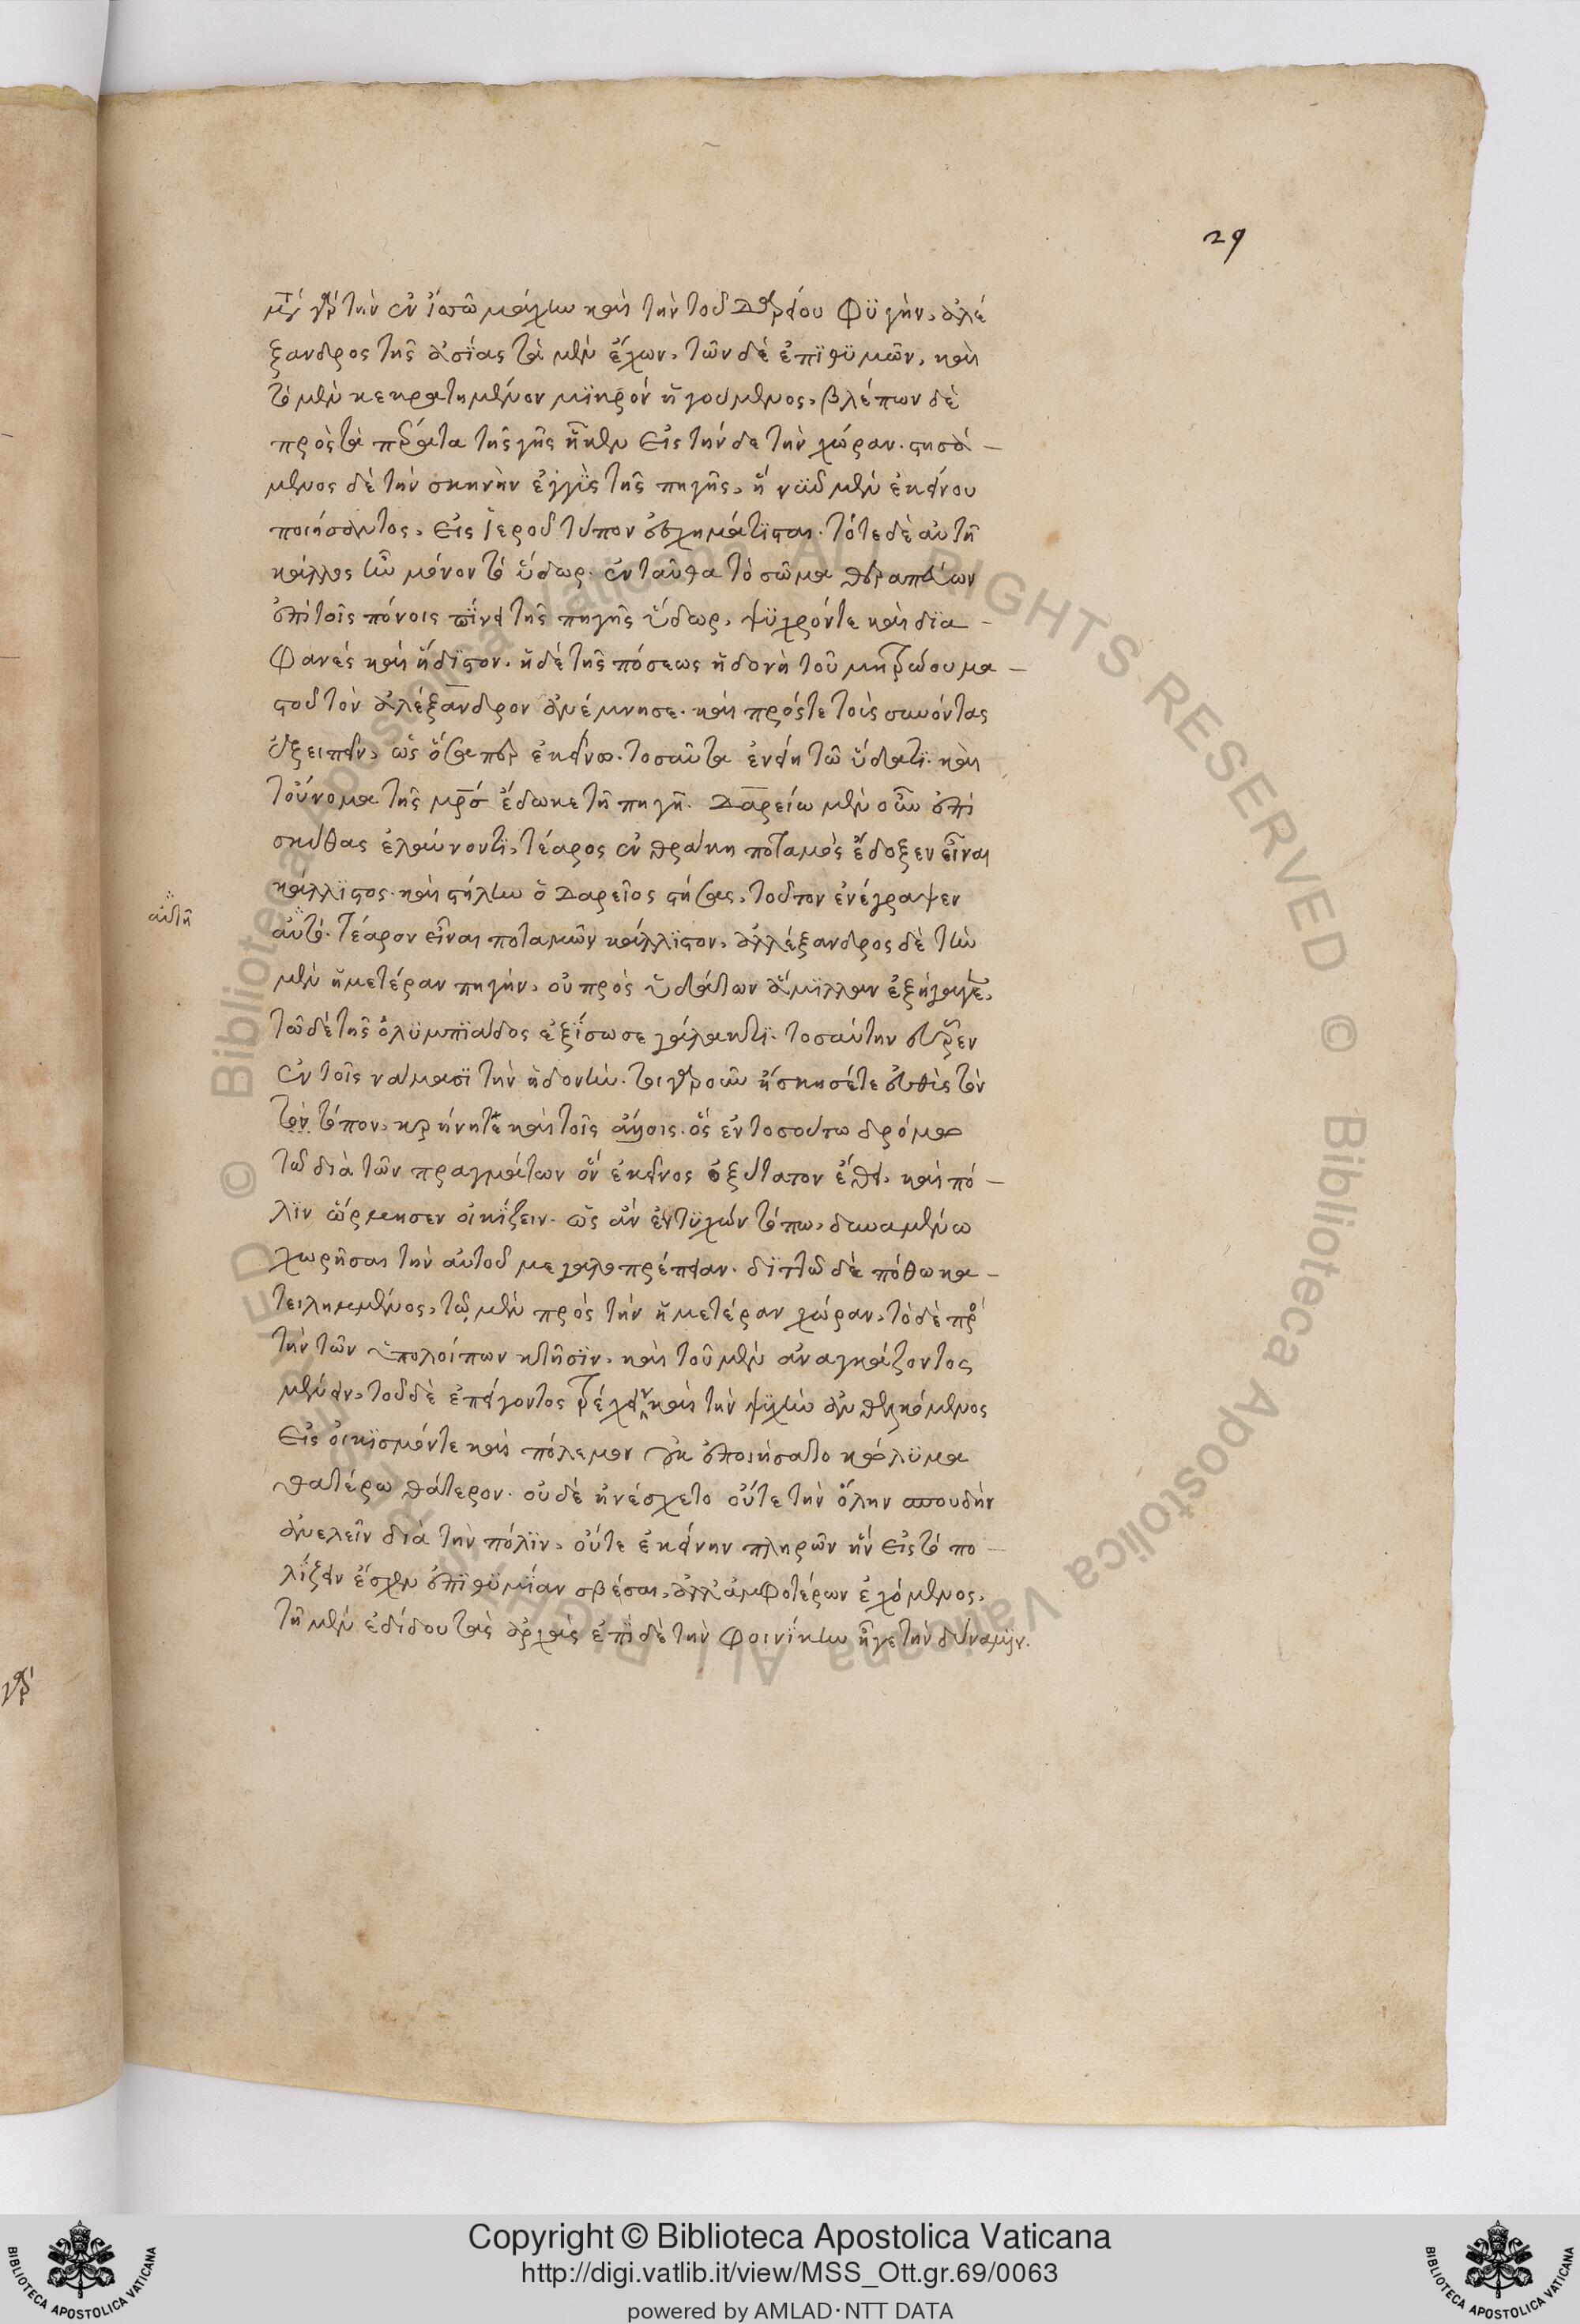 29
μετὰ γὰρ τὴν ἐν ἰσσῶ μάχην καὶ τὴν τοῦ Δαρείου φϋγὴν, ἀλέ
ξανδρος τῆς ἀσίας τὰ μὲν ἔχων, τῶν δὲ ἐπϊθϋμῶν, καὶ
τὸ μὲν κεκρατημένον μϊκρὸν ἡγούμενος, βλέπων δὲ
πρὸς τὰ πέρατα τῆς γῆς ἧκεν εἰς τήνδε τὴν χώραν. στησά-
μενος δὲ τὴν σκηνὴν ἐγγὺς τῆς πηγῆς, ἣ νῦν μὲν ἐκείνου
ποιήσαντος, εἰς ἱεροῦ τύπον ἐσχημάτϊσται. τότε δὲ αὐτῆ
κάλλος ἦν μόνον τὸ ὕδωρ. ἐνταῦθα τὸ σῶμα θεραπεύων
ἐπὶ τοῖς πόνοις πίνει τῆς πηγῆς ὕδωρ, ψϋχρόντε καὶ δϊα-
φανὲς καὶ ἥδϊστον. ἡ δὲ τῆς πόσεως ἡδονὴ τοῦ μητρώου μα-
στοῦ τὸν ἀλέξανδρον ἀνέμνησε. καὶ πρόστε τοὺς συνόντας
ἐξειπεῖν, ὡς ὅσαπερ ἐκείνω. τοσαῦτα ἐνείη τῶ ὕδατι. καὶ
τοὔνομα τῆς μρσ ἔδωκε τῆ πηγῆ. Δαρείω μὲν οὖν ἐπὶ
σκύθας ἐλαύνοντϊ, τέαρος ἐν θράκη ποταμὸς ἔδοξεν εἶναι
κάλλϊστος. καὶ στήλην ὁ Δαρεῖος στήσας, τοῦτον ἐνέγραψεν
αὐτῆ
αὐτό. τέαρον εἶναι ποταμῶν κάλλϊστον, ἀλλέξανδρος δὲ τὴν
μὲν ἡμετέραν πηγήν, οὐ πρὸς ὑδάτων ἅμϊλλαν ἐξήγαγε,
τῶ δὲ τῆς ὀλϋμπϊάδος ἐξίσωσε γάλακτϊ. τοσαύτην εὗρεν
ἐν τοῖς νάμασϊ τὴν ἡδονήν. τοιγαροῦν ἤσκησέτε εὐθὺς τὸν
τὸν τόπον, κρήνητε καὶ τοῖς ἄλλοις. ὡς ἐν τοσούτω δρόμω
τῶ διὰ τῶν πραγμάτων ὃν ἐκεῖνος ὀξύτατον ἔθει, καὶ πό-
λϊν ὥρμησεν οἰκίζειν. ὡς ἂν ἐντϋχὼν τόπω, δυναμένω
χωρῆσαι τὴν αὐτοῦ μεγαλοπρέπειαν. δϊττῶ δὲ πόθω κα-
τειλημμένος, τῶ μὲν πρὸς τὴν ἡμετέραν χώραν, τὸ δὲ πρὸς
τὴν τῶν ὑπολοίπων κτῆσϊν, καὶ τοῦ μὲν ἀναγκάζοντος
μένειν, τοῦ δὲ ἐπείγοντος τρέχειν, καὶ τὴν ψυχὴν ἀνθελκόμενος
εἰς οἰκϊσμόντε καὶ πόλεμον οὐκ ἐποιήσατο κώλϋμα
θατέρω θάτερον. οὐδὲ ἠνέσχετο οὔτε τὴν ὅλην σπουδὴν
ἀνελεῖν διὰ τὴν πόλϊν, οὔτε ἐκείνην πληρῶν ἣν εἰς τὸ πο-
λίζειν ἔσχεν ἐπϊθϋμΐαν σβέσαι, ἀλλ' ἀμφοτέρων ἐχόμενος,
τῆ μὲν ἐδίδου τὰς ἀρχὰς ἐπὶ δὲ τὴν φοινΐκην ἦγε τὴν δύναμϊν.
γὰρ
Copyright © Biblioteca Apostolica Vaticana
http://digi.vatlib.it/view/MSS_Ott.gr.69/0063
powered by AMLAD·NTT DATA